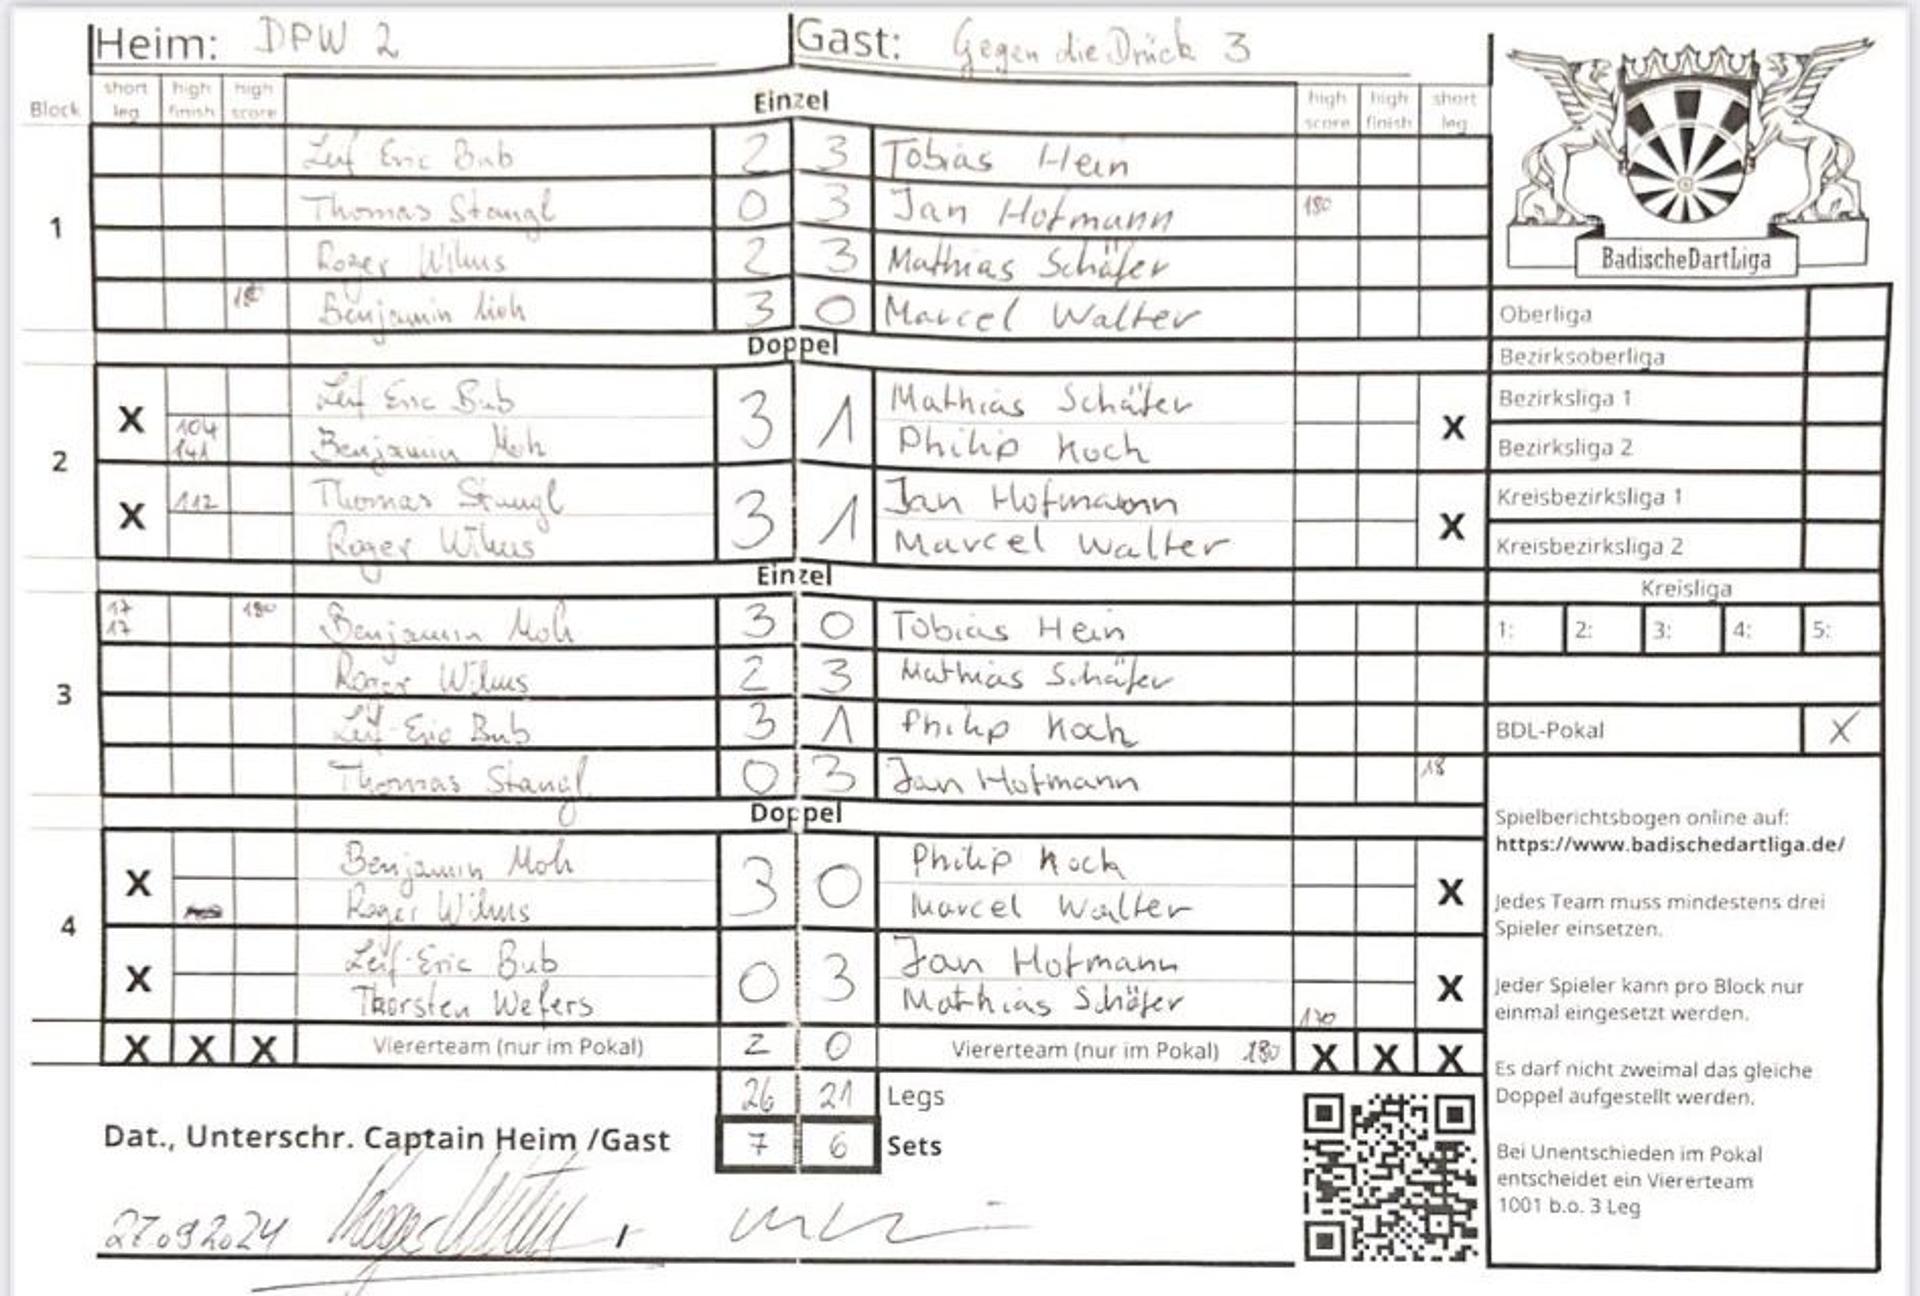 Heim: DPW 2 Gast: Gegen die Drück 3
Block short leg high finish high score Einzel high score high finish short leg
1
Leif Eric Bub 2 3 Tobias Hein
Thomas Stangl 0 3 Jan Hofmann 180
Roger Wilms 2 3 Mathias Schäfer
180 Benjamin Moh 3 0 Marcel Walter
Doppel
2
X Leif Eric Bub 3 1 Mathias Schäfer X
104 141 Benjamin Moh Philip Koch
X 112 Thomas Stangl 3 1 Jan Hofmann X
Roger Wilms Marcel Walter
Einzel
3
17 17 180 Benjamin Moh 3 0 Tobias Hein
Roger Wilms 2 3 Mathias Schäfer
Leif-Eric Bub 3 1 Philip Koch
Thomas Stangl 0 3 Jan Hofmann 18
Doppel
4
X Benjamin Moh 3 0 Philip Koch X
Roger Wilms Marcel Walter
X Leif-Eric Bub 0 3 Jan Hofmann X
Thorsten Wefers Mathias Schäfer
X X X Viererteam (nur im Pokal) 2 0 Viererteam (nur im Pokal) 180 X X X
26 21 Legs
Dat., Unterschr. Captain Heim /Gast 7 6 Sets
27.09.2024
BadischeDartLiga
Oberliga
Bezirksoberliga
Bezirksliga 1
Bezirksliga 2
Kreisbezirksliga 1
Kreisbezirksliga 2
Kreisliga
1: 2: 3: 4: 5:
BDL-Pokal X
Spielberichtsbogen online auf:
https://www.badischedartliga.de/
Jedes Team muss mindestens drei
Spieler einsetzen.
Jeder Spieler kann pro Block nur
einmal eingesetzt werden.
Es darf nicht zweimal das gleiche
Doppel aufgestellt werden.
Bei Unentschieden im Pokal
entscheidet ein Viererteam
1001 b.o. 3 Leg